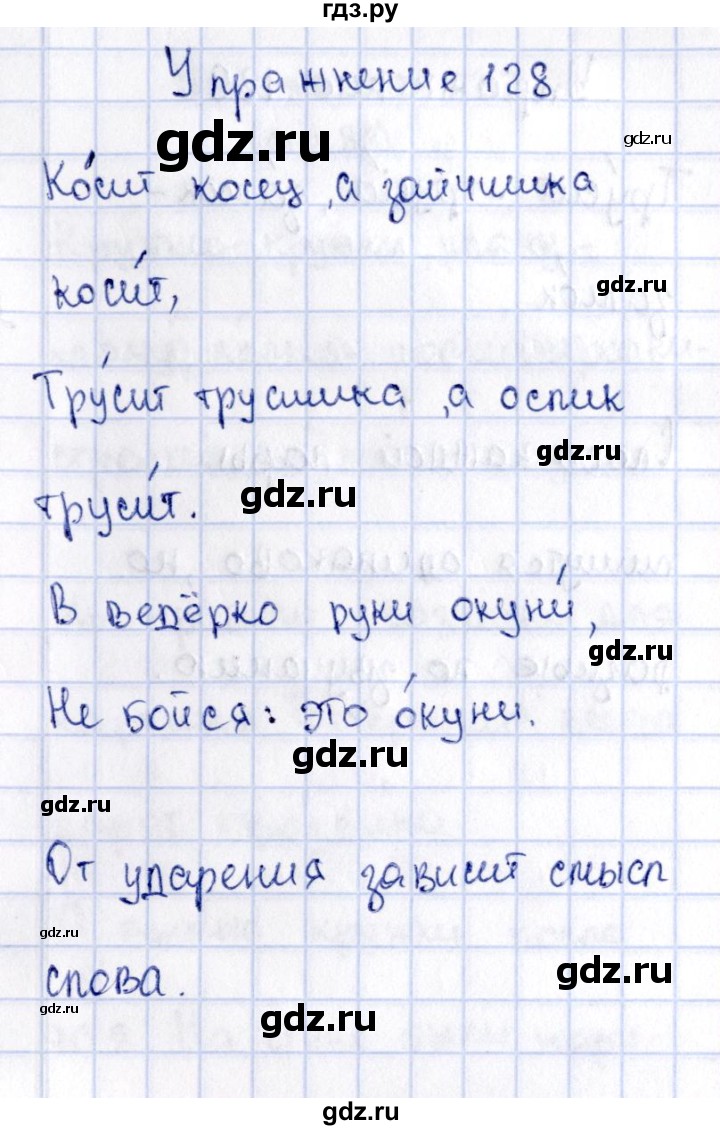 гдз.ру
Упражнение 128
gdz.ru
gdz.ru
Ко́сит косец, а зайчишка
gdz.ru
коси́т,
Тру́сит трусишка, а ослик
gdz.ru
gdz.ru
труси́т.
В ведёрко руки окуни́,
gdz.ru
Не бойся: это о́куни.
gdz.ru
gdz.ru
От ударения зависит смысл
gdz.ru
слова.
gdz.ru
gdz.ru
gdz.ru
gdz.ru